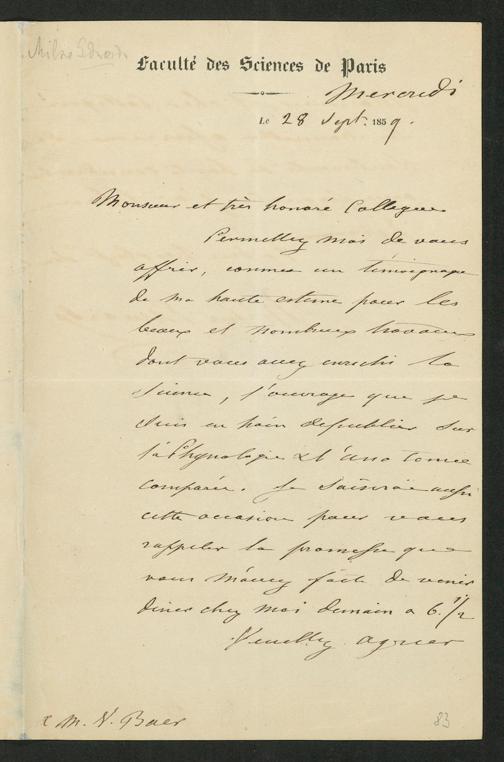 Milne Edwards
Faculté des Sciences de Paris
Mercredi
Le 28 Sept. 1859.
Monsieur et très honoré Collegue
Permettez moi de vous
offrir, comme un témoignage
de ma haute estime pour les
beaux et nombreux travaux
dont vous avez enrichi la
Science, l'ouvrage que je
suis en train de publier sur
la Physiologie & l'anatomie
comparée. Je saisirai aussi
cette occasion pour vous
rappeler la promesse que
vous m'avez faite de venir
diner chez moi demain a 6. 1/2
Veuillez agreer
M. V. Baer
83